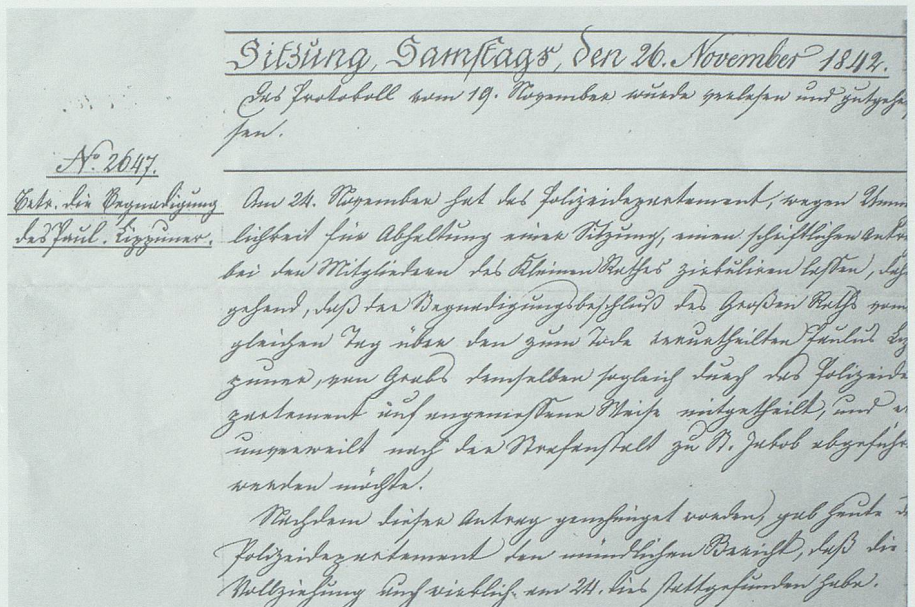 Sitzung, Samstags, den 26. November 1842.
Das Protokoll vom 19. November wurde verlesen und gutgehei
sen.
No. 2647.
Betr. die Begnadigung
des Paul. Lippuner.
Am 24. November hat das Polizeidepartement, wegen Unmög
lichkeit für Abhaltung einer Sitzung, einen schriftlichen Antra
bei den Mitgliedern des Kleinen Rathes zirkuliren lassen, dahi
gehend, daß der Begnadigungsbeschluß des Großen Raths vom
gleichen Tag über den zum Tode verurtheilten Paulus Lip
puner, von Grabs demselben sogleich durch das Polizeide
partement auf angemessene Weise mitgetheilt, und er
unverweilt nach der Strafanstalt zu St. Jakob abgeführt
werden möchte.
Nachdem dieser Antrag genehmiget worden, gab heute d
Polizeidepartement den mündlichen Bericht, daß die
Vollziehung auch wirklich am 24. dies stattgefunden habe.